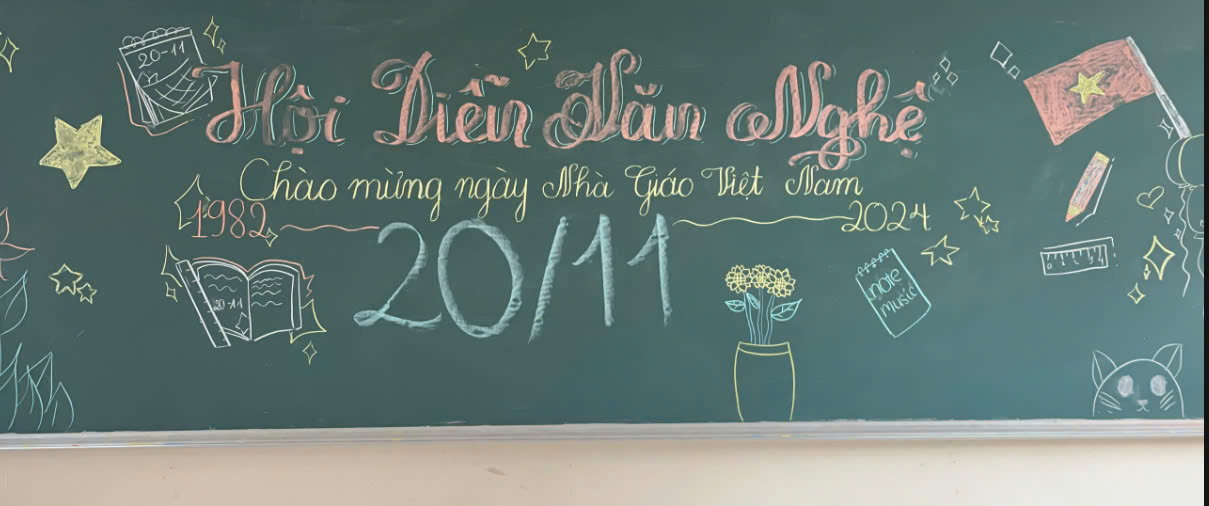 20-11
Hội Diễn Văn Nghệ
Chào mừng ngày Nhà Giáo Việt Nam
1982
2024
20/11
20-11
note
music